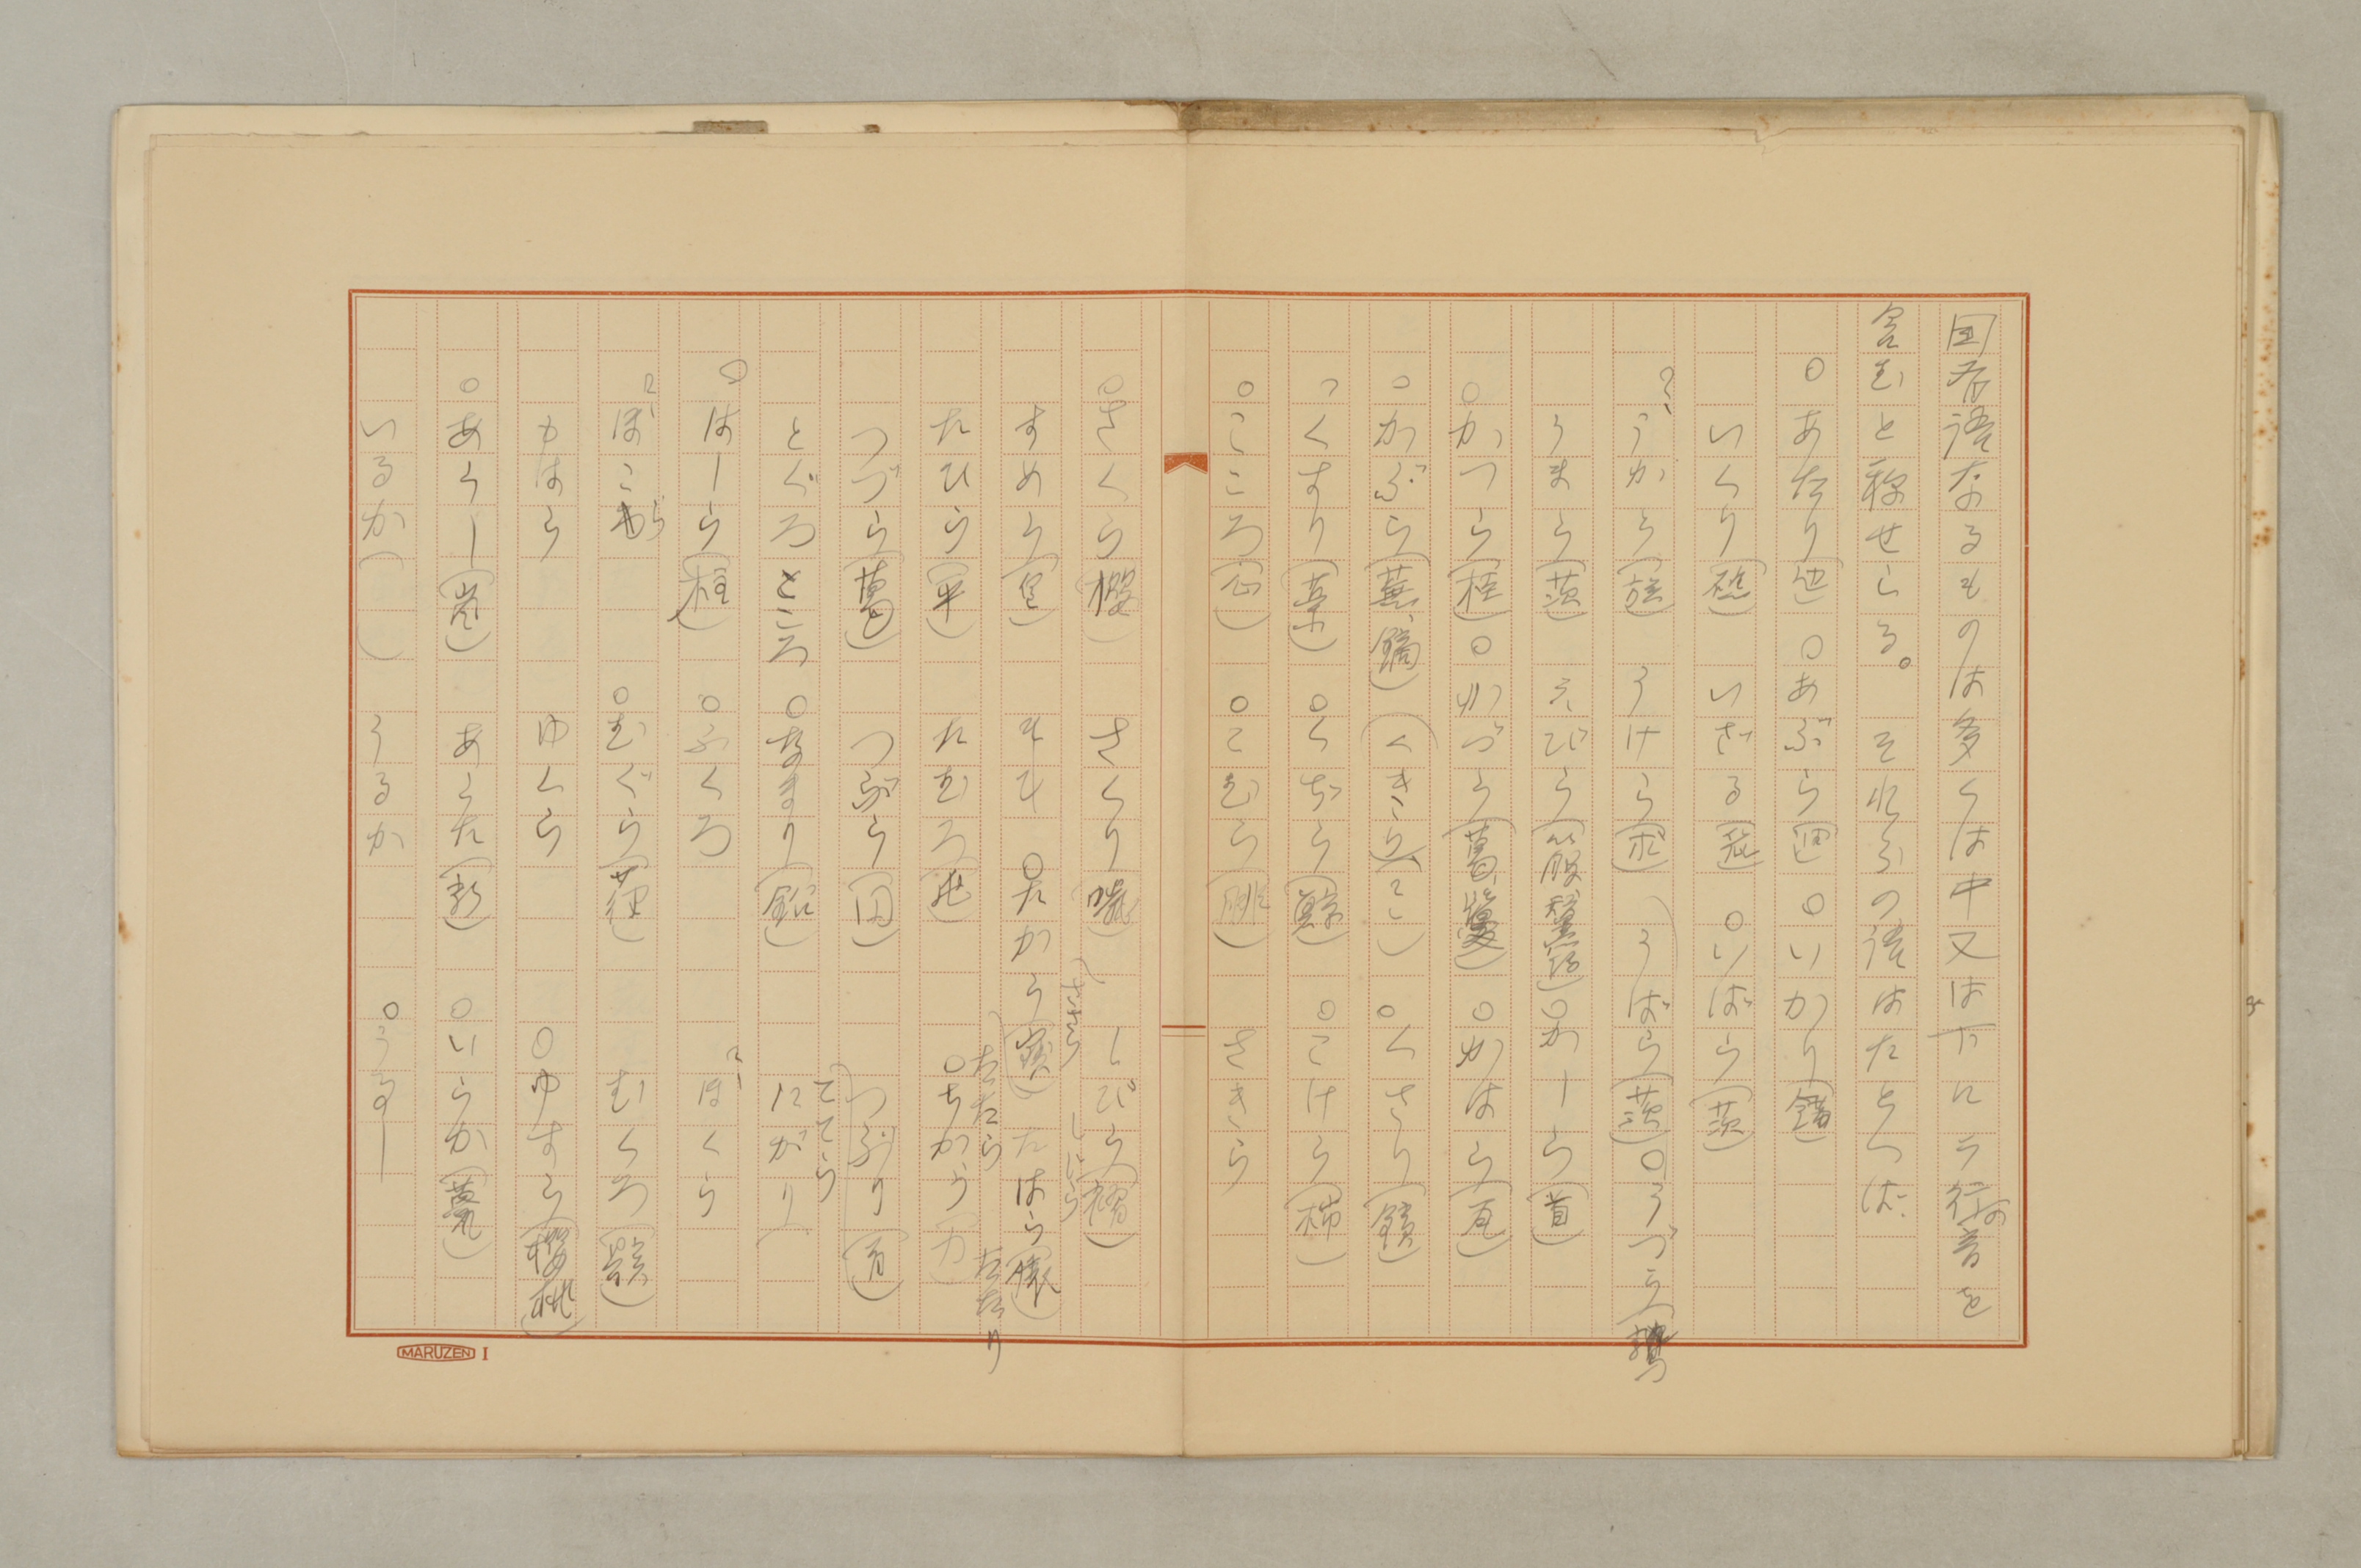 固有語なるものは多くは中又は下にラ行の音を
含むと称せらる。それらの語はたとへば
○あたり(辺) ○あぶら(油) ○いかり(錨)
いくり いざる ○いばら(茨)
うから(族) うけら (うばら(茨) ○うづら
うまら(茨) えびら(箙) ○かしら(首)
○かつら(桂) ○かづら(葛、) ○かはら(瓦)
○かぶら(蕪、鏑) (くきら) ○くさり(鎖)
○くすり(薬) ○くぢら(鯨) ○こけら(柿)
○こころ(心) ○こむら(腓) さきら
○さくら(櫻) さくり しびら(褶)
ささら しじら
すめら(皇) ○たから(寶) たはら
たひら(平) たむろ(屯) ○ちから(力)
たたら たたり
つづら(葛) つぶら(円) つぶり
とぐろ ところ ○なまり(鉛) にがり
ててら
○はしら(柱) ○ふくろ ほくら
ほこら ○むぐら(葎) むくろ
もはら ゆくら ○ゆすら(櫻桃)
○あらし(嵐) あらた(新) ○いらか(甍)
いるか( ) うるか ○うるし
MARUZEN I